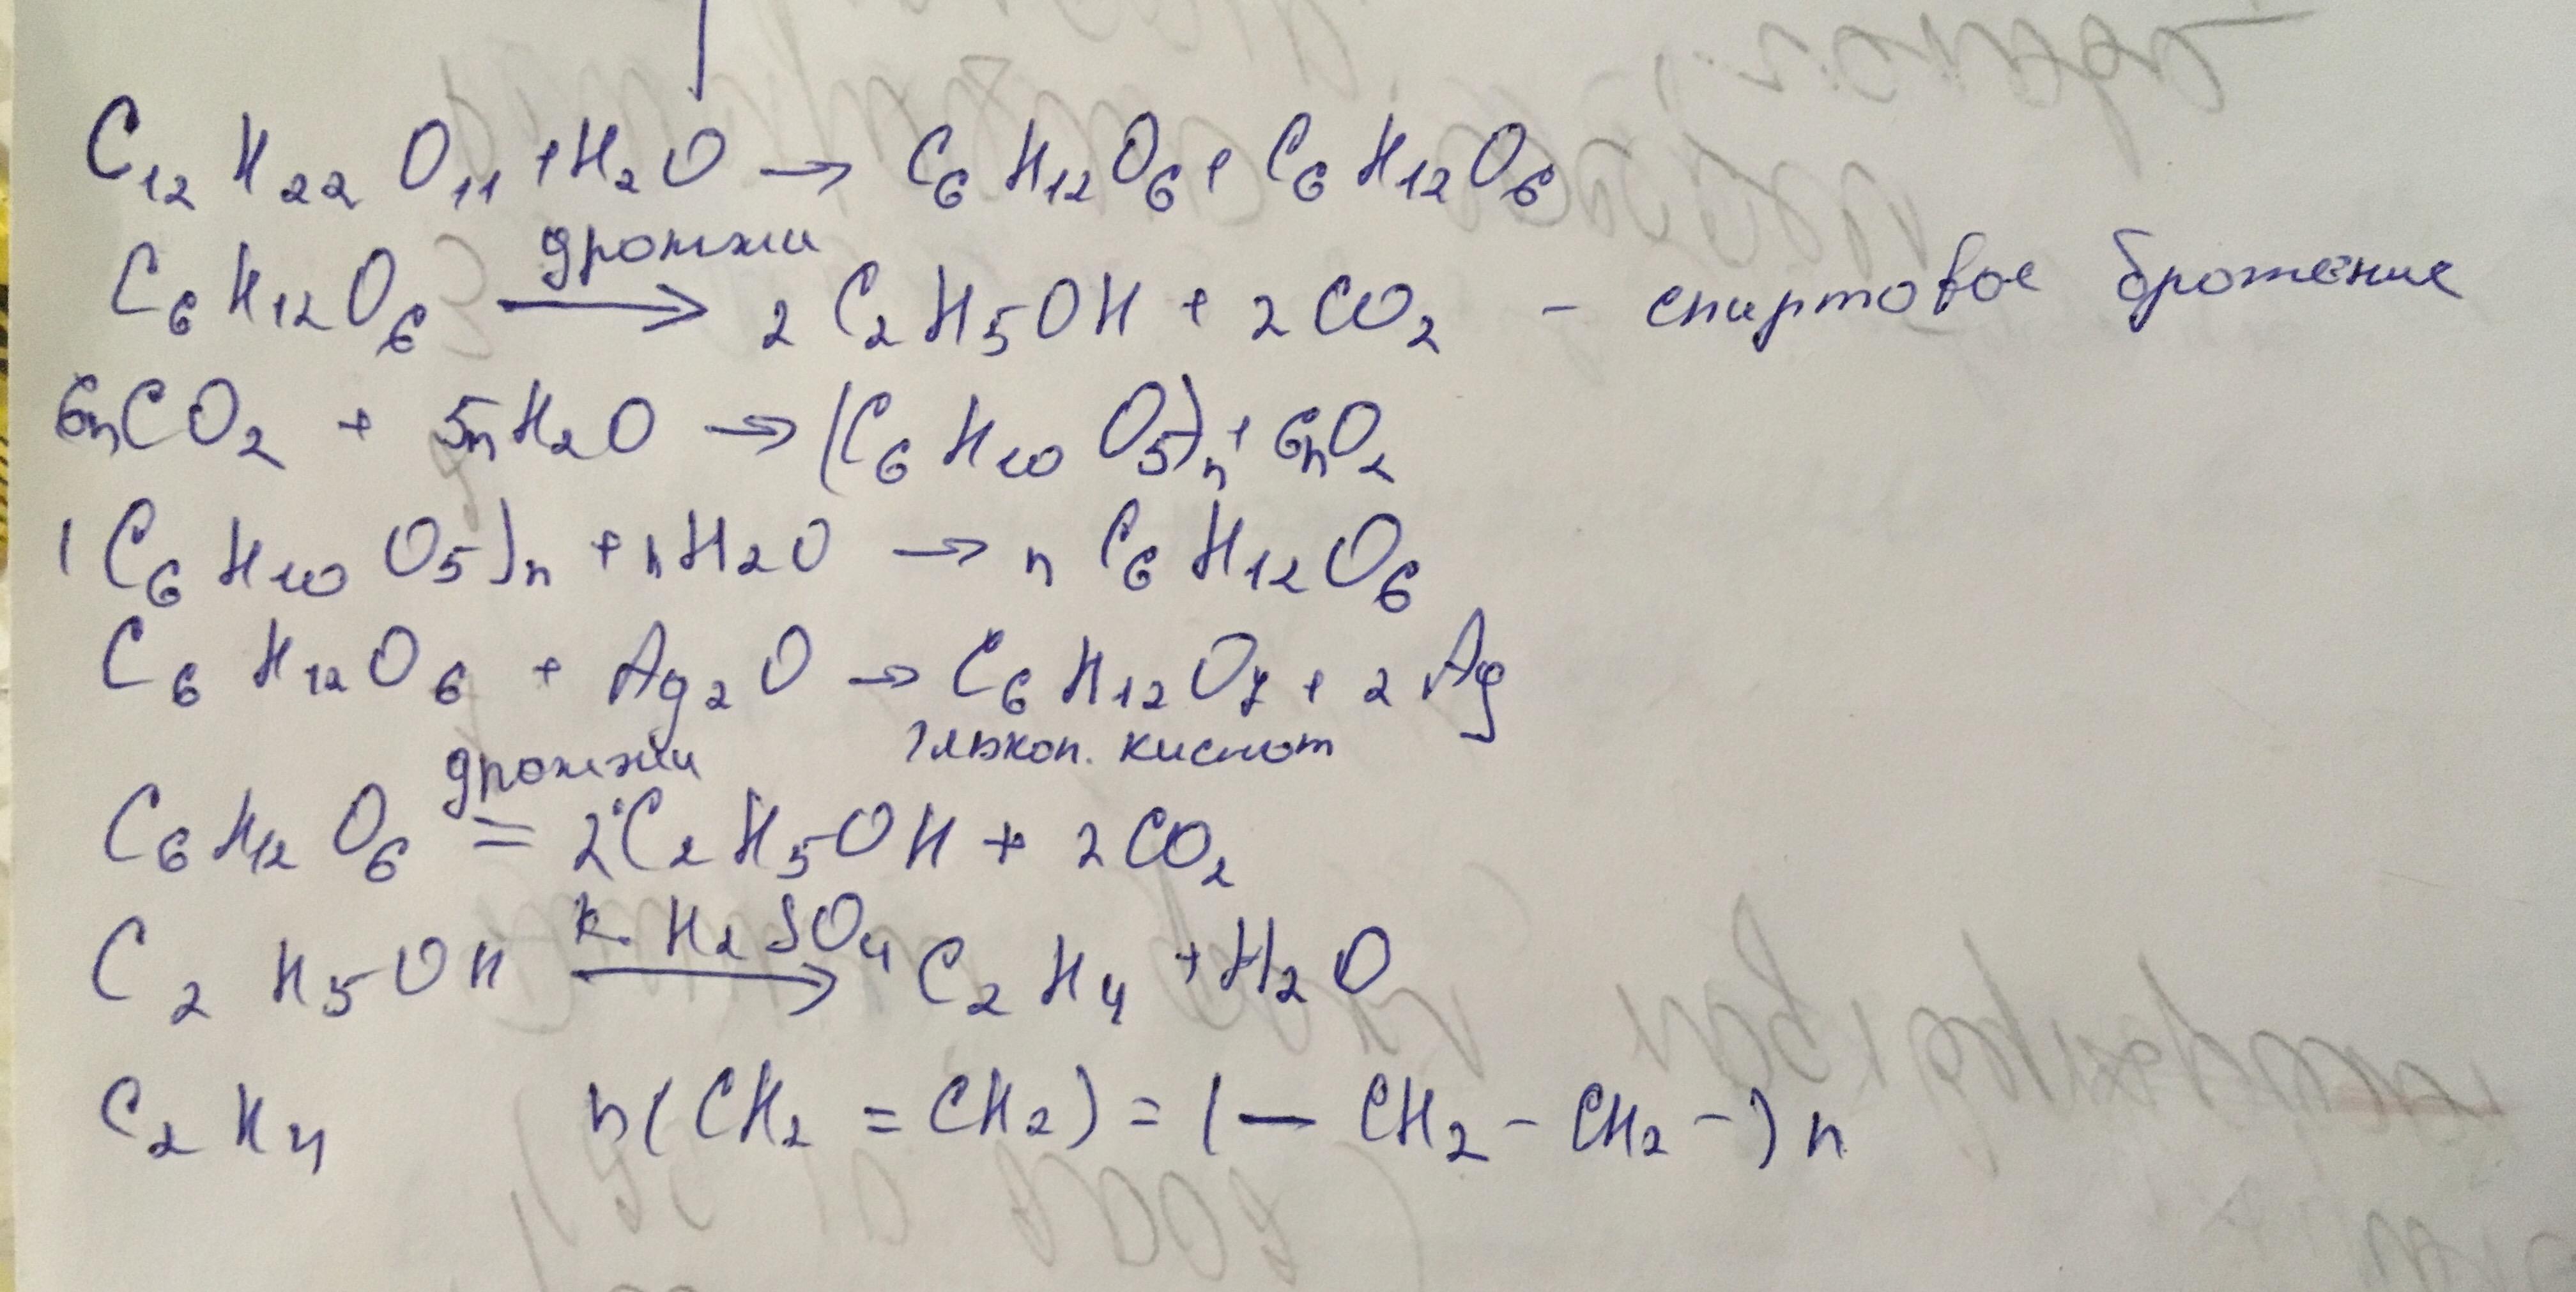 C₁₂H₂₂O₁₁ + H₂O → C₆H₁₂O₆ + C₆H₁₂O₆
дрожжи
C₆H₁₂O₆ → 2C₂H₅OH + 2CO₂ - спиртовое брожение
6nCO₂ + 5nH₂O → (C₆H₁₀O₅)n + 6nO₂
(C₆H₁₀O₅)n + nH₂O → n C₆H₁₂O₆
C₆H₁₂O₆ + Ag₂O → C₆H₁₂O₇ + 2Ag
глюкон. кислот
дрожжи
C₆H₁₂O₆ = 2C₂H₅OH + 2CO₂
к. H₂SO₄
C₂H₅OH → C₂H₄ + H₂O
C₂H₄ n(CH₂ = CH₂) = (— CH₂ - CH₂ -)n